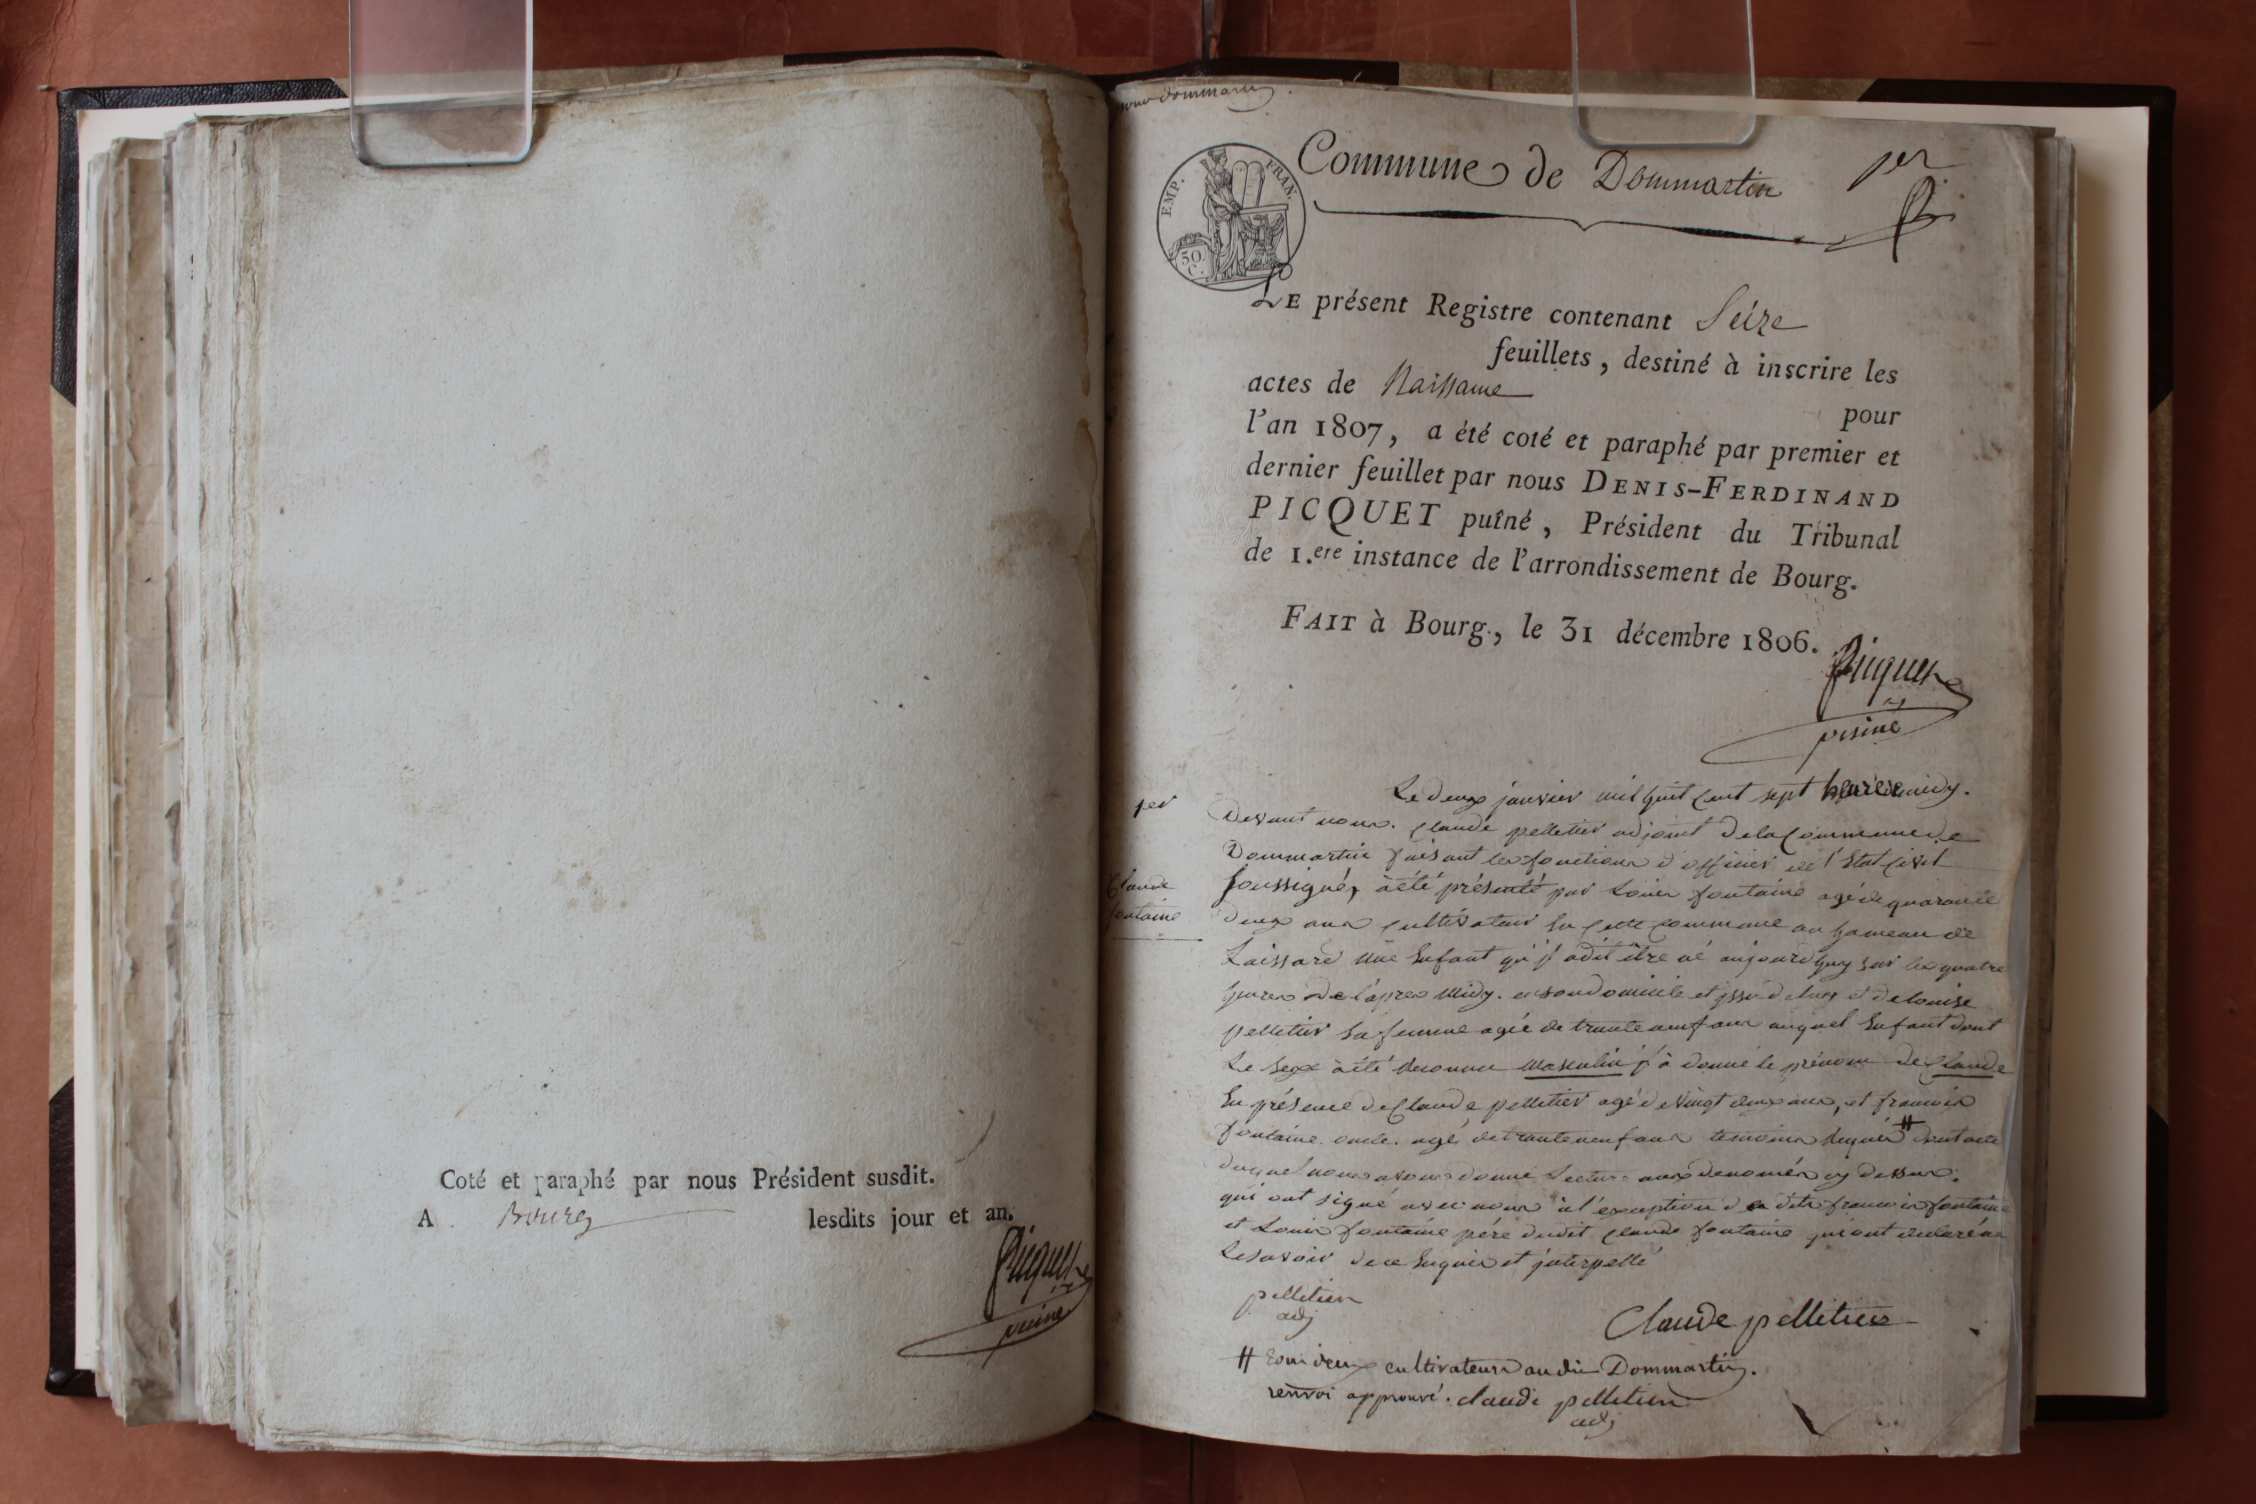 Coté et paraphé par nous Président susdit.
A Bourg lesdits jour et an.
Picquet
puiné
Dommartin
Commune de Dommartin per
EMP. FRAN.
50
C.
LE présent Registre contenant Seize
feuillets, destiné à inscrire les
actes de Naissance
pour
l'an 1807, a été coté et paraphé par premier et
dernier feuillet par nous DENIS-FERDINAND
PICQUET puîné, Président du Tribunal
de 1.ere instance de l'arrondissement de Bourg.
FAIT à Bourg, le 31 décembre 1806.
Picquet
puiné
per
Claude
fontaine
Le deux janvier mil huit cent sept heure midy.
Devant nous. Claude pelletier adjoint de la Commune de
Dommartin faisant les fonctions d'officier de l'Etat Civil
soussigné, à été présenté par Louis fontaine agé de quarante
deux ans cultivateur en cette commune au hameau de
Laissard une Enfant qu'il a dit être né aujourd'huy sur les quatre
heures de l'apres midy. en son domicile et issu de luy et de louise
pelletier sa femme agée de trente neuf ans auquel Enfant dont
le sexe à été reconnu masculin j'a donné le prénom de Claude
En présence de Claude pelletier agé de vingt deux ans, et francois
fontaine oncle. agé de trente neuf ans temoins requis # dont acte
duquel nous avons donné lecture aux denomés cy dessus.
qui ont signé avec nous à l'exception de dits francois fontaine
et Louis fontaine père dudit Claude fontaine qui ont declaré ne
le savoir de ce Enquis et interpellé
pelletier
adj
Claude pelletier
# tous deux cultivateurs au dit Dommartin.
renvoi approuvé. claude pelletier
adj